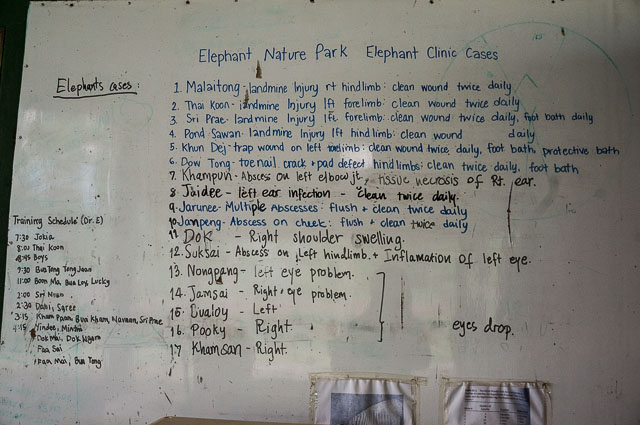 Elephant Nature Park Elephant Clinic Cases
Elephants cases:
1. Malaitong - landmine Injury rt hindlimb: clean wound twice daily
2. Thai Koon - landmine Injury lft forelimb: clean wound twice daily
3. Sri Prae - landmine Injury lft forelimb: clean wound twice daily, foot bath daily
4. Pond Sawan - landmine Injury lft hindlimb: clean wound daily
5. Khun Dej - trap wound on left hindlimb: clean wound twice daily, foot bath protective bath
6. Dow Tong - toenail crack + pad defect hindlimbs: clean twice daily, foot bath
7. Khampun - Abscess on left elbow jt, tissue necrosis of Rt. ear.
8. Jaidee - left ear infection - clean twice daily.
9. Jarunee - Multiple Abscesses: flush + clean twice daily
10. Janpeng - Abscess on cheek: flush + clean twice daily
11 Dok - Right shoulder swelling.
12. Suksai - Abscess on Left hindlimb. + Inflamation of left eye.
13. Nongpang - left eye problem.
14. Jamsai - Right eye problem.
15. Bualoy - Left
16. Pooky - Right.
17 Khamsan - Right.
eyes drop.
Training Schedule (Dr. E)
7:30 Jokia
8:00 Thai Koon
8:45 Boys
9:30 Bua Tong Tong Jaan
11:00 Boon Ma, Bua Loy, Lucky
1:00 Sri Nuan
2:30 Dani, Sgree
3:15 Kham Paan, Bua Kham, Navaan, Sri Prae
4:15 Yindee, Mintra
Dok Mai, Dok Ngern
Faa Sai
Faa Mai, Bua Tong